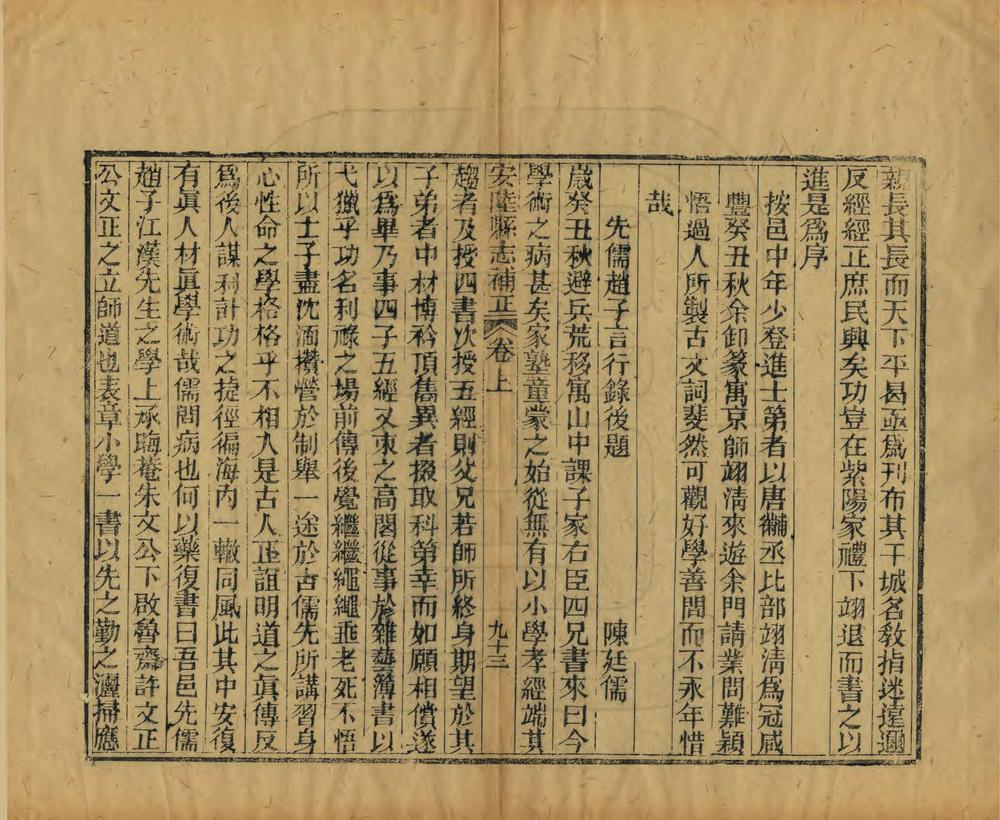 親長其長而天下平曷亟爲刋布其干城名敎指迷遠邇
反經經正庶民興矣功豈在紫陽家禮下翊退而書之以
進是爲序
按邑中年少登進士第者以唐黼丞比部翊淸爲冠咸
豐癸丑秋余卸篆寓京師翊淸來遊余門請業問難穎
悟過人所製古文詞斐然可觀好學善問而不永年惜
哉
先儒趙子言行錄後題 陳廷儒
歲癸丑秋避兵荒移寓山中課子家右臣四兄書來曰今
學術之病甚矣家塾童蒙之始從無有以小學孝經端其
安陸縣志補正 卷上 九十三
趨者及授四書次授五經則父兄若師所終身期望於其
子弟者中材博衿頂雋異者掇取科第幸而如願相償遂
以爲畢乃事四子五經又束之高閣從事於雜藝薄書以
弋獵乎功名利祿之場前傳後覺繼繼繩繩垂老死不悟
所以士子盡沈湎攢營於制舉一途於古儒先所講習身
心性命之學格格乎不相入是古人正誼明道之眞傳反
爲後人謀利計功之捷徑徧海內一轍同風此其中安復
有眞人材眞學術哉儒問病也何以藥復書曰吾邑先儒
趙子江漢先生之學上承晦菴朱文公下啟魯齋許文正
公文正之立師道也表章小學一書以先之勤之灑掃應